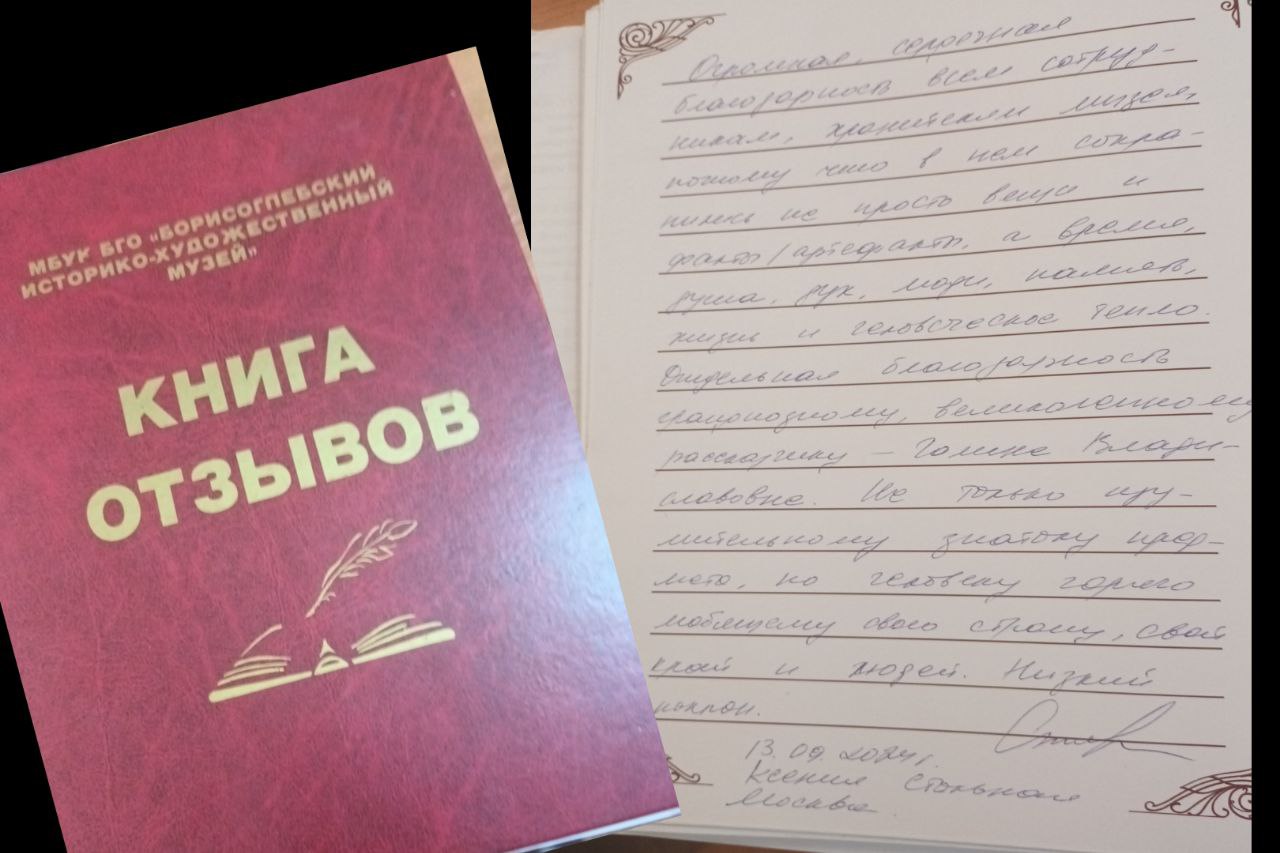 МБУК БГО «БОРИСОГЛЕБСКИЙ
ИСТОРИКО-ХУДОЖЕСТВЕННЫЙ
МУЗЕЙ»
КНИГА
ОТЗЫВОВ
Огромная, сердечная
благодарность всем сотруд-
никам, хранителям музея,
потому что в нем сохра-
нились не просто вещи и
факты/артефакты, а время,
душа, дух, люди, память,
жизнь и человеческое тепло.
Отдельная благодарность
великолепному
рассказчику – Галине Влади-
славовне. Не только изу-
мительному знатоку пред-
мета, но человеку горячо
любящему свою страну, свой
край и людей. Низкий
поклон.
13.09.2024г.
Ксения Стольная
Москва